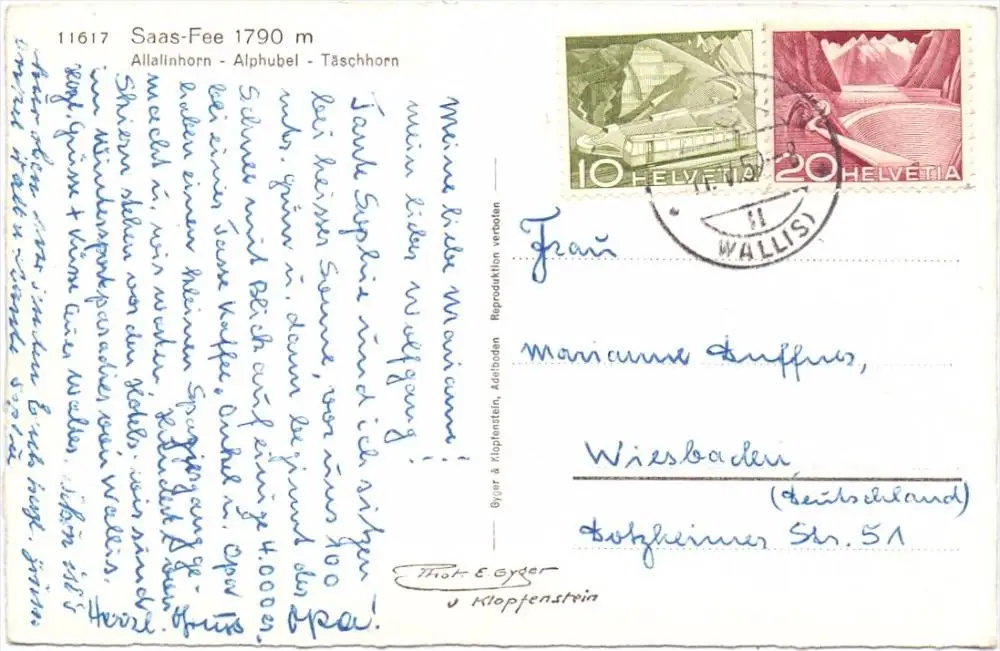 11617 Saas-Fee 1790 m
Allalinhorn - Alphubel - Täschhorn
Meine liebe Mariann!
mein lieber Wolfgang!
Tante Sophie und ich sitzen
bei heisser Sonne, vor uns 100
mtr. grün u. dann beginnt der
Schnee mit Blick auf einige 4.000er
bei einer Tasse Kaffee. Onkel u. Opa
haben einen kleinen Spaziergang ge-
macht u. wir warten
Skiern stehen vor den Hotels. wir sind
im Wintersportparadies von Wallis.
Hzgl. Grüsse + Küsse Euer Walter. Schön ist's
hier oben
Herzl. Gruss Opa!
Gyger & Klopfenstein, Adelboden Reproduktion verboten
Phot. E. Gyger
u Klopfenstein
10 HELVETIA
20 HELVETIA
II
(WALLIS)
Frau
Marianne Duffner,
Wiesbaden
(Deutschland)
Dotzheimer Str. 51